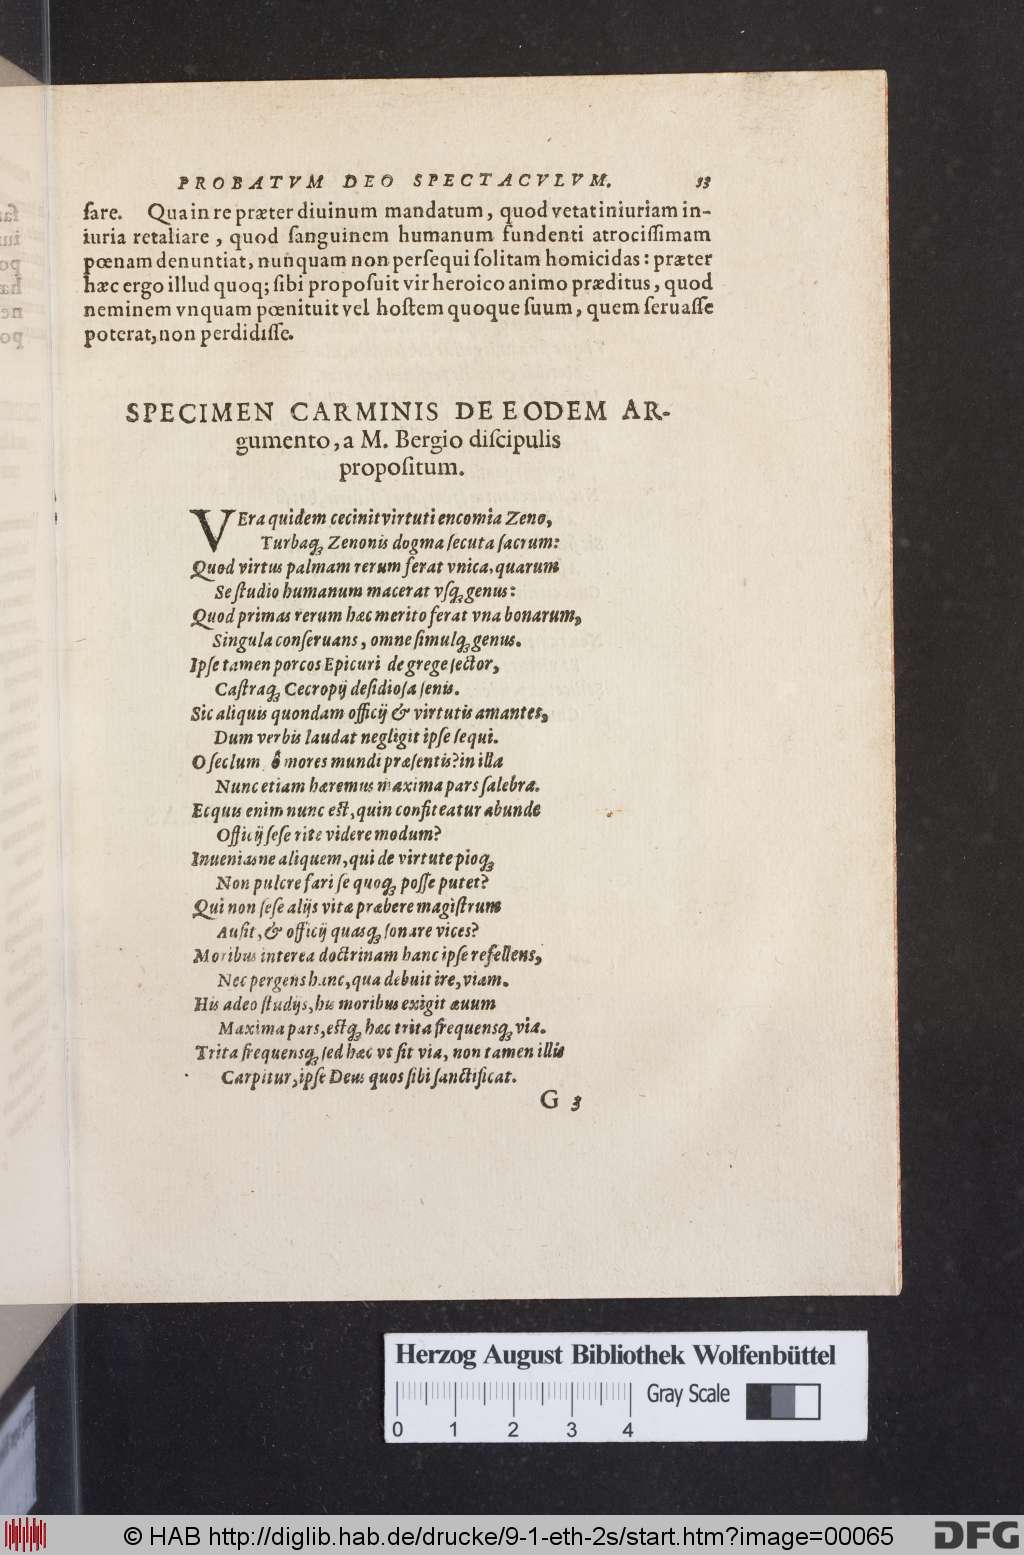 PROBATVM DEO SPECTACVLVM. 53
ſare. Qua in re præter diuinum mandatum, quod vetat iniuriam in-
iuria retaliare, quod ſanguinem humanum fundenti atrociſſimam
pœnam denuntiat, nunquam non perſequi ſolitam homicidas: præter
hæc ergo illud quoq; ſibi propoſuit vir heroico animo præditus, quod
neminem vnquam pœnituit vel hoſtem quoque ſuum, quem ſeruaſſe
poterat, non perdidiſſe.
SPECIMEN CARMINIS DE EODEM AR-
gumento, a M. Bergio diſcipulis
propoſitum.
VEra quidem cecinit virtuti encomia Zeno,
Turbaq; Zenonis dogma ſecuta ſacrum:
Quod virtus palmam rerum ferat vnica, quarum
Se ſtudio humanum macerat vſq; genus:
Quod primas rerum hæc merito ferat vna bonarum,
Singula conſeruans, omne ſimulq; genus.
Ipſe tamen porcos Epicuri de grege ſector,
Caſtraq; Cecropij deſidioſa ſenis.
Sic aliquis quondam officij & virtutis amantes,
Dum verbis laudat negligit ipſe ſequi.
O ſeclum, ô mores mundi præſentis? in illa
Nunc etiam hæremus maxima pars ſalebra.
Ecquis enim nunc eſt, quin confiteatur abunde
Officij ſeſe rite videre modum?
Inueniasne aliquem, qui de virtute pioq;
Non pulcre fari ſe quoq; poſſe putet?
Qui non ſeſe alijs vitæ præbere magiſtrum
Auſit, & officij quasq; ſonare vices?
Moribus interea doctrinam hanc ipſe refellens,
Nec pergens hanc, qua debuit ire, viam.
His adeo ſtudijs, his moribus exigit æuum
Maxima pars, eſtq; hæc trita frequensq; via.
Trita frequensq; ſed hæc vt ſit via, non tamen illis
Carpitur, ipſe Deus quos ſibi ſanctificat.
G 3
Herzog August Bibliothek Wolfenbüttel
Gray Scale
0 1 2 3 4
© HAB http://diglib.hab.de/drucke/9-1-eth-2s/start.htm?image=00065
DFG